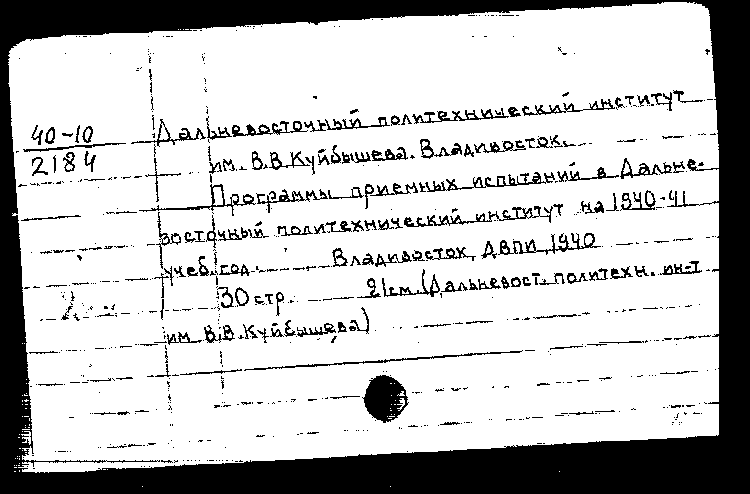 40-10
2184
Дальневосточный политехнический институт
им. В.В. Куйбышева. Владивосток.
Программы приемных испытаний в Дальне-
восточный политехнический институт на 1940-41
учеб. год. Владивосток, ДВПИ, 1940
30 стр. 21 см. (Дальневост. политехн. ин-т
им В.В. Куйбышева)